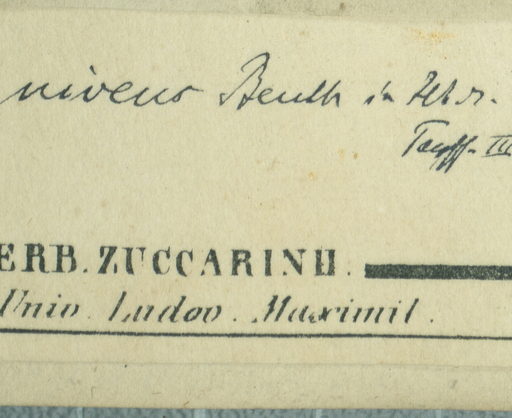 niveus Benth in
III
ERB. ZUCCARINII.
Univ. Ludov. Maximil.